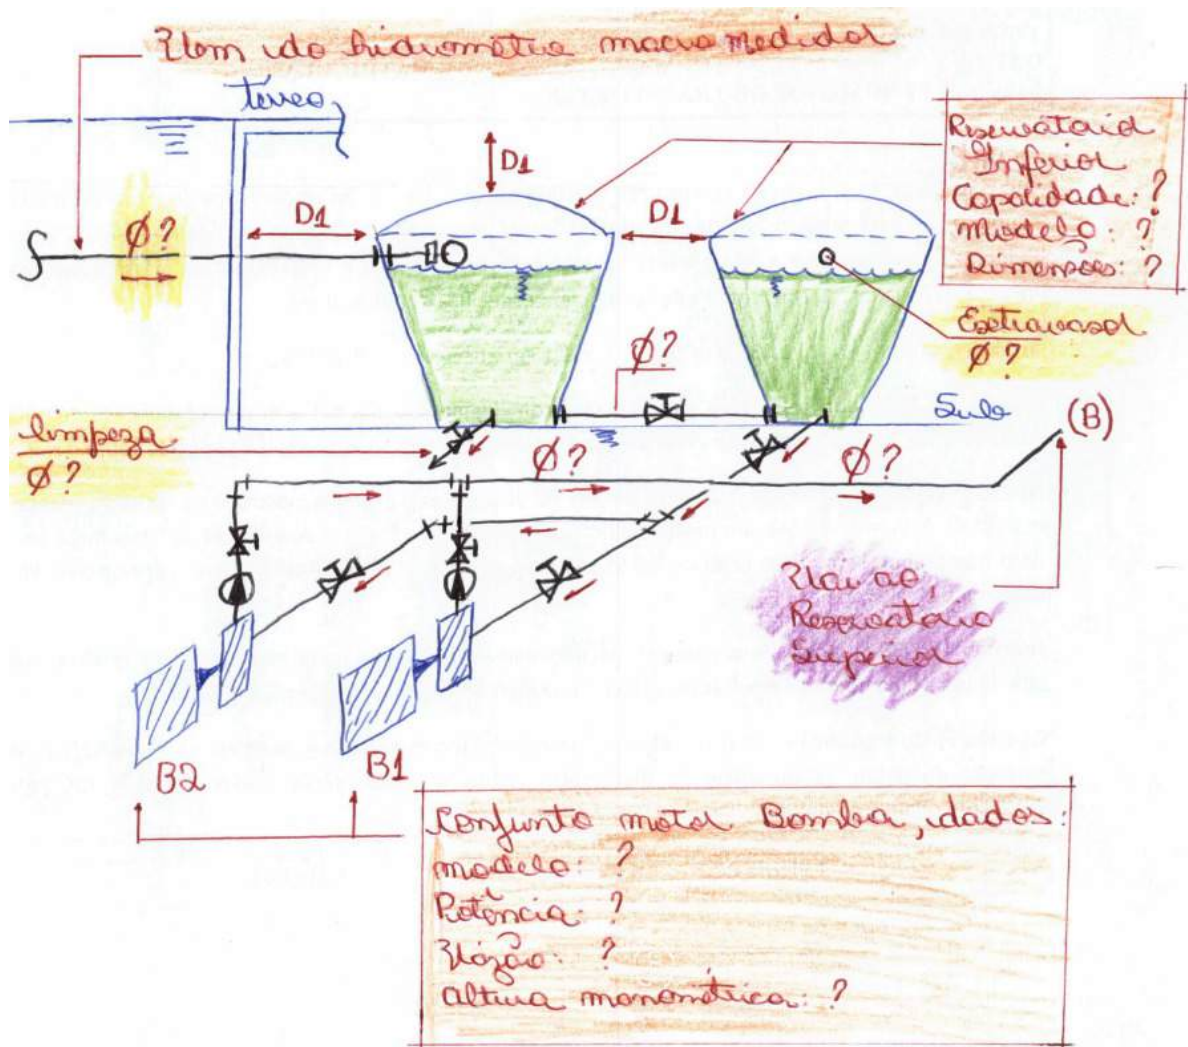 Vem do hidrômetro macromedidor
Térreo
D1
Reservatório
Inferior
Capacidade: ?
Modelo: ?
Dimensões: ?
Ø?
D1
D1
Extravasor
Ø?
Ø?
Solo
(B)
limpeza
Ø?
Ø?
Ø?
Vai ao
Reservatório
Superior
B2
B1
Conjunto motor Bomba, dados:
modelo: ?
Potência: ?
Vazão: ?
altura manométrica: ?